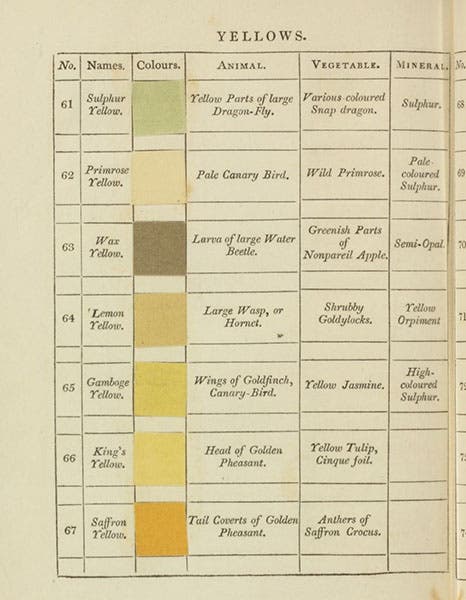 YELLOWS.
No. Names. Colours. ANIMAL. VEGETABLE. MINERAL. No.
61 Sulphur Yellow. Yellow Parts of large Dragon-Fly. Various-coloured Snap dragon. Sulphur. 68
62 Primrose Yellow. Pale Canary Bird. Wild Primrose. Pale-coloured Sulphur. 69
63 Wax Yellow. Larva of large Water Beetle. Greenish Parts of Nonpareil Apple. Semi-Opal. 70
64 Lemon Yellow. Large Wasp, or Hornet. Shrubby Goldylocks. Yellow Orpiment 71
65 Gamboge Yellow. Wings of Goldfinch, Canary-Bird. Yellow Jasmine. High-coloured Sulphur.
66 King's Yellow. Head of Golden Pheasant. Yellow Tulip, Cinque foil.
67 Saffron Yellow. Tail Coverts of Golden Pheasant. Anthers of Saffron Crocus.